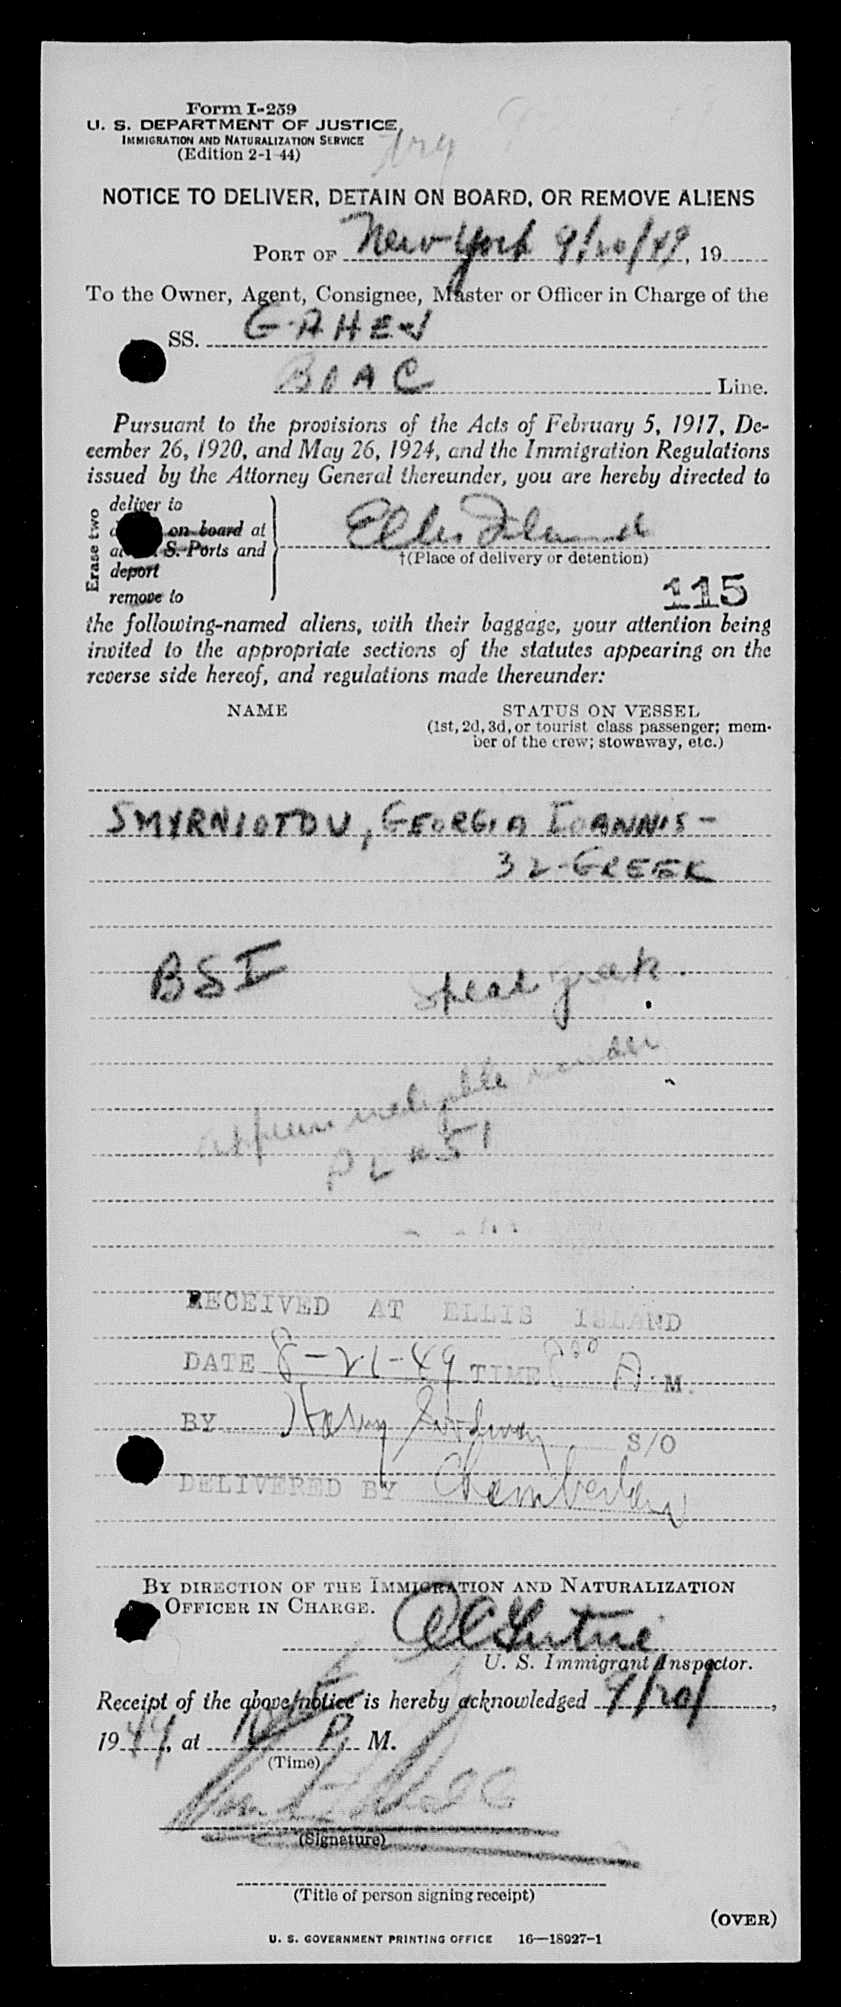 Form I-259
U. S. DEPARTMENT OF JUSTICE
IMMIGRATION AND NATURALIZATION SERVICE
(Edition 2-1-44)
NOTICE TO DELIVER, DETAIN ON BOARD, OR REMOVE ALIENS
PORT OF New York 9/20/49, 19
To the Owner, Agent, Consignee, Master or Officer in Charge of the
SS. G-AHEN
BOAC Line.
Pursuant to the provisions of the Acts of February 5, 1917, De-
cember 26, 1920, and May 26, 1924, and the Immigration Regulations
issued by the Attorney General thereunder, you are hereby directed to
Erase two
deliver to
on board at
S. Ports and
deport
remove to
Ellis Island
†(Place of delivery or detention)
115
the following-named aliens, with their baggage, your attention being
invited to the appropriate sections of the statutes appearing on the
reverse side hereof, and regulations made thereunder:
NAME STATUS ON VESSEL
(1st, 2d, 3d, or tourist class passenger; mem-
ber of the crew; stowaway, etc.)
SMYRNIOTOU, GEORGIA IOANNIS-
32-GREEK
BSI
Speak greek.
appears ineligible under
PL 51
RECEIVED AT ELLIS ISLAND
DATE 8-21-49 TIME A M.
BY Harry S/O
DELIVERED BY Chamberlain
BY DIRECTION OF THE IMMIGRATION AND NATURALIZATION
OFFICER IN CHARGE.
U. S. Immigrant Inspector.
Receipt of the above notice is hereby acknowledged 9/20/,
1949, at P. M.
(Time)
(Signature)
(Title of person signing receipt)
(OVER)
U. S. GOVERNMENT PRINTING OFFICE 16—18927-1